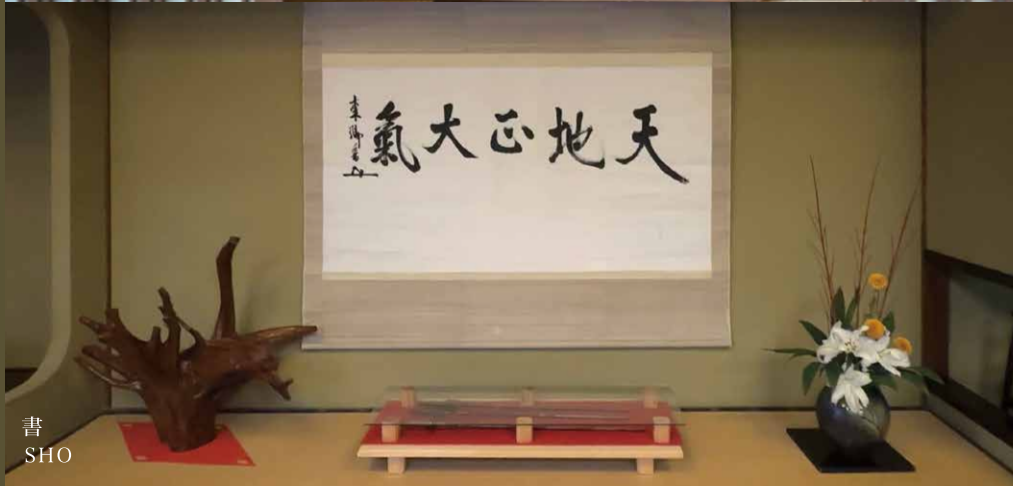 天地正大氣
書
SHO